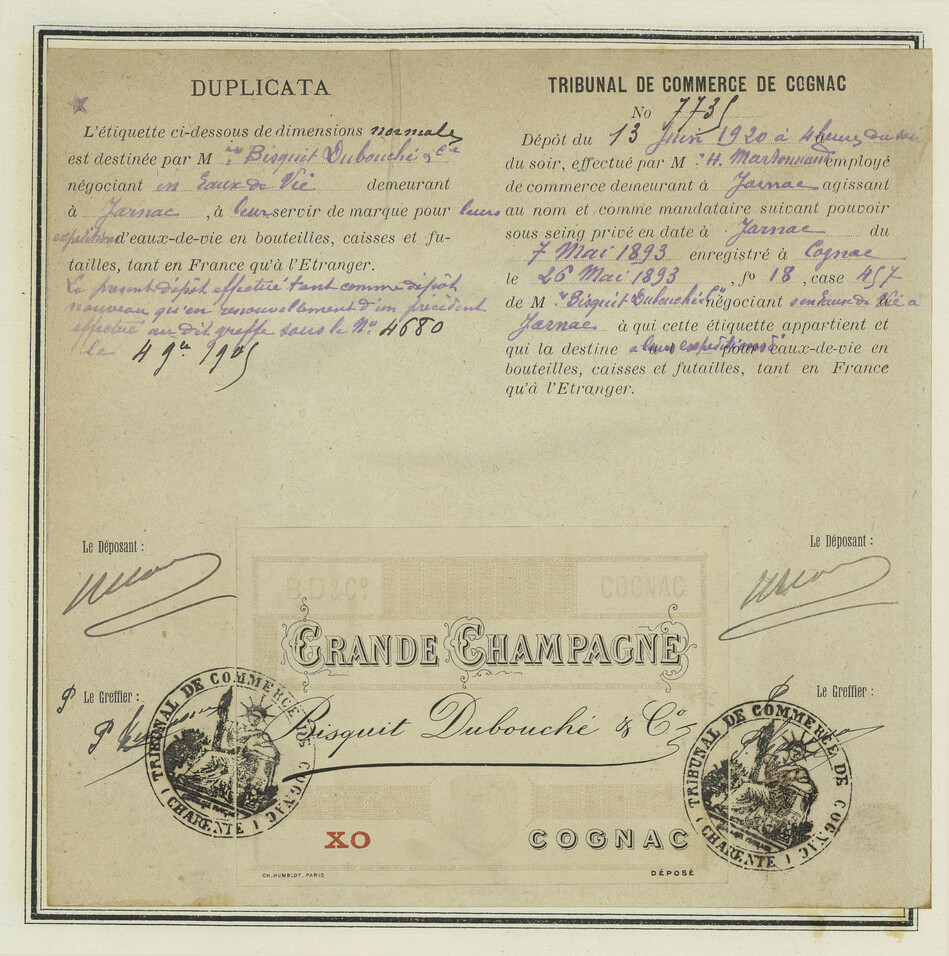 DUPLICATA
L'étiquette ci-dessous de dimensions normale
est destinée par M rs Bisquit Dubouché & Cie
négociant en Eaux de Vie demeurant
à Jarnac, à leur servir de marque pour leurs
expéditions d'eaux-de-vie en bouteilles, caisses et fu-
tailles, tant en France qu'à l'Etranger.
Le présent dépôt effectué tant comme dépôt
nouveau qu'en renouvellement d'un précédent
effectué au dit greffe sous le No. 4680
le 4 9re 1905
TRIBUNAL DE COMMERCE DE COGNAC
No 7735
Dépôt du 13 Juin 1920 à 4 heures du soir
du soir, effectué par M. H. employé
de commerce demeurant à Jarnac agissant
au nom et comme mandataire suivant pouvoir
sous seing privé en date à Jarnac du
7 Mai 1893 enregistré à Cognac
le 26 Mai 1893, fo 18, case 457
de M rs Bisquit Dubouché & Cie négociant s en Eaux de Vie à
Jarnac à qui cette étiquette appartient et
qui la destine a leurs expéditions d' pour eaux-de-vie en
bouteilles, caisses et futailles, tant en France
qu'à l'Etranger.
Le Déposant :
Le Déposant :
B.D & Co
COGNAC
GRANDE CHAMPAGNE
P Le Greffier :
P Le Greffier :
Bisquit Dubouché & Co
TRIBUNAL DE COMMERCE DE COGNAC
(CHARENTE)
TRIBUNAL DE COMMERCE DE COGNAC
(CHARENTE)
XO
COGNAC
CH. HUMBLOT, PARIS
DÉPOSÉ